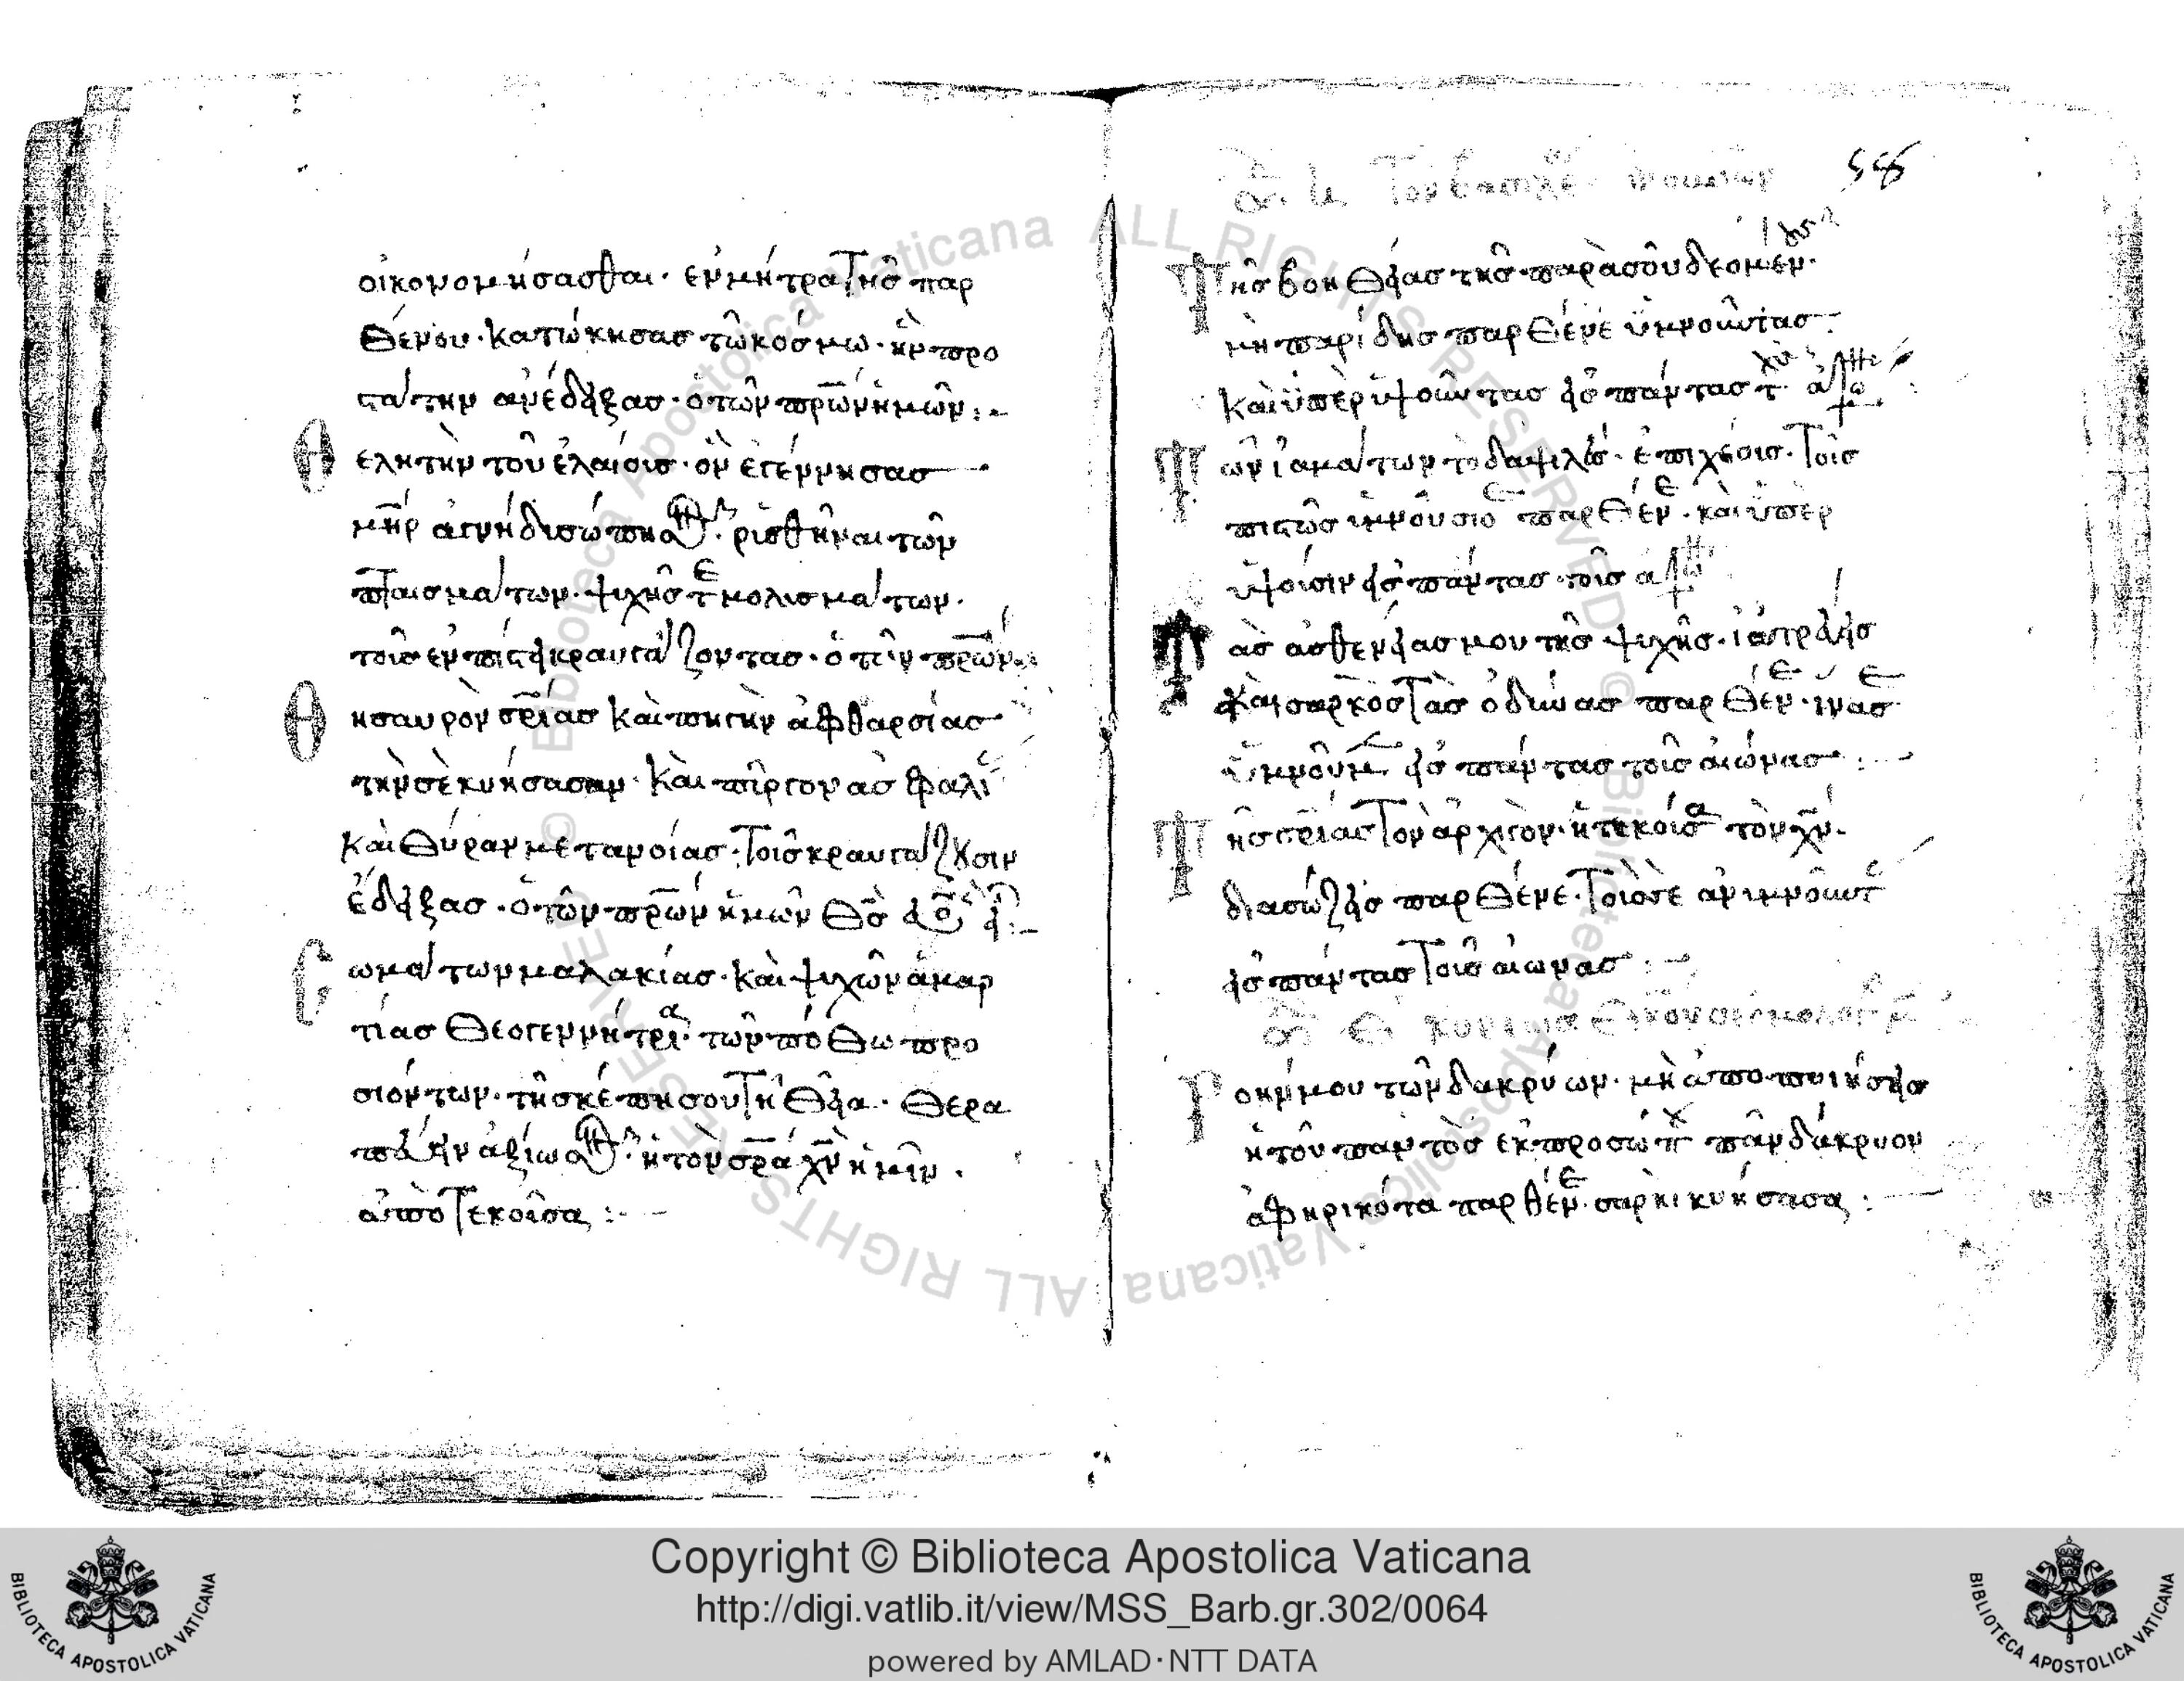 οἰκονομήσασθαι· ἐν μήτρα τῆς παρ
θένου· κατώκησας τῶ κόσμω· ἣν προ
στάτην ἀνέδειξας· ὁ τῶν πρων ἡμῶν :-
Θελητὴν τοῦ ἐλαίους· ὃν ἐγέννησας
μηρ ἁγνὴ δυσώπησ ρισθῆναι τῶν
πταισμάτων· ψυχῆς τε μολισμάτων·
τοῖς ἐν πίστει κραυγάζοντας· ὁ τῶν πρων
Θησαυρὸν σρίας καὶ πηγὴν ἀφθαρσίας
τὴν σὲ κυήσασαν· καὶ πύργον ἀσφαλί
καὶ θύραν μετανοίας· τοῖς κραυγάζουσιν
ἔδειξας· ὁ τῶν πρων ἡμῶν θς
Σωμάτων μαλακίας· καὶ ψυχῶν ἁμαρ
τίας θεογεννήτρια· τῶν πόθω προ
σιόντων· τῆ σκέπη σου τῆ θεία· θερα
ἀξίωσ ἡ τὸν σρα χν ἡμῖν·
ἀποτεκοῦσα :-
Τὸν βασιλε
Τῆς βοηθείας τῆς παρὰ σοῦ δεομέν·
μὴ παρίδης παρθένε ὑμνοῦντας
καὶ ὑπερυψοῦντας εἰς πάντας τ
Τῶν ἰαμάτων τὸ δαψιλὲς· ἐπιχέοις· τοῖς
πιστῶς ὑμνοῦσι παρθένε· καὶ ὑπερ
υψοῦσιν εἰς πάντας τοῖς
Τὰς ἀσθενείας μου τῆς ψυχῆς· ἰατρεύεις
καὶ σαρκὸς τὰς ὀδύνας παρθένε· ἵνα σε
ὑμνοῦμεν εἰς πάντας τοὺς αἰώνας :-
Τῆς σρίας τὸν ἀρχιγὸν· ἡ τεκοῦσα τὸν χν·
διασώζεις παρθένε· τοὺς σε ἀνυμνοῦντ
εἰς πάντας τοῖς αἰωνας :-
Κυρίως
Ροήν μου τῶν δακρύων· μὴ ἀποποιήσεις
ἡ τὸν παντὸς ἐκ προσώπου πᾶν δάκρυον
ἀφηρικότα παρθένε· σαρκὶ κυήσασα :-
Copyright © Biblioteca Apostolica Vaticana
http://digi.vatlib.it/view/MSS_Barb.gr.302/0064
powered by AMLAD·NTT DATA
BIBLIOTECA APOSTOLICA VATICANA
BIBLIOTECA APOSTOLICA VATICANA